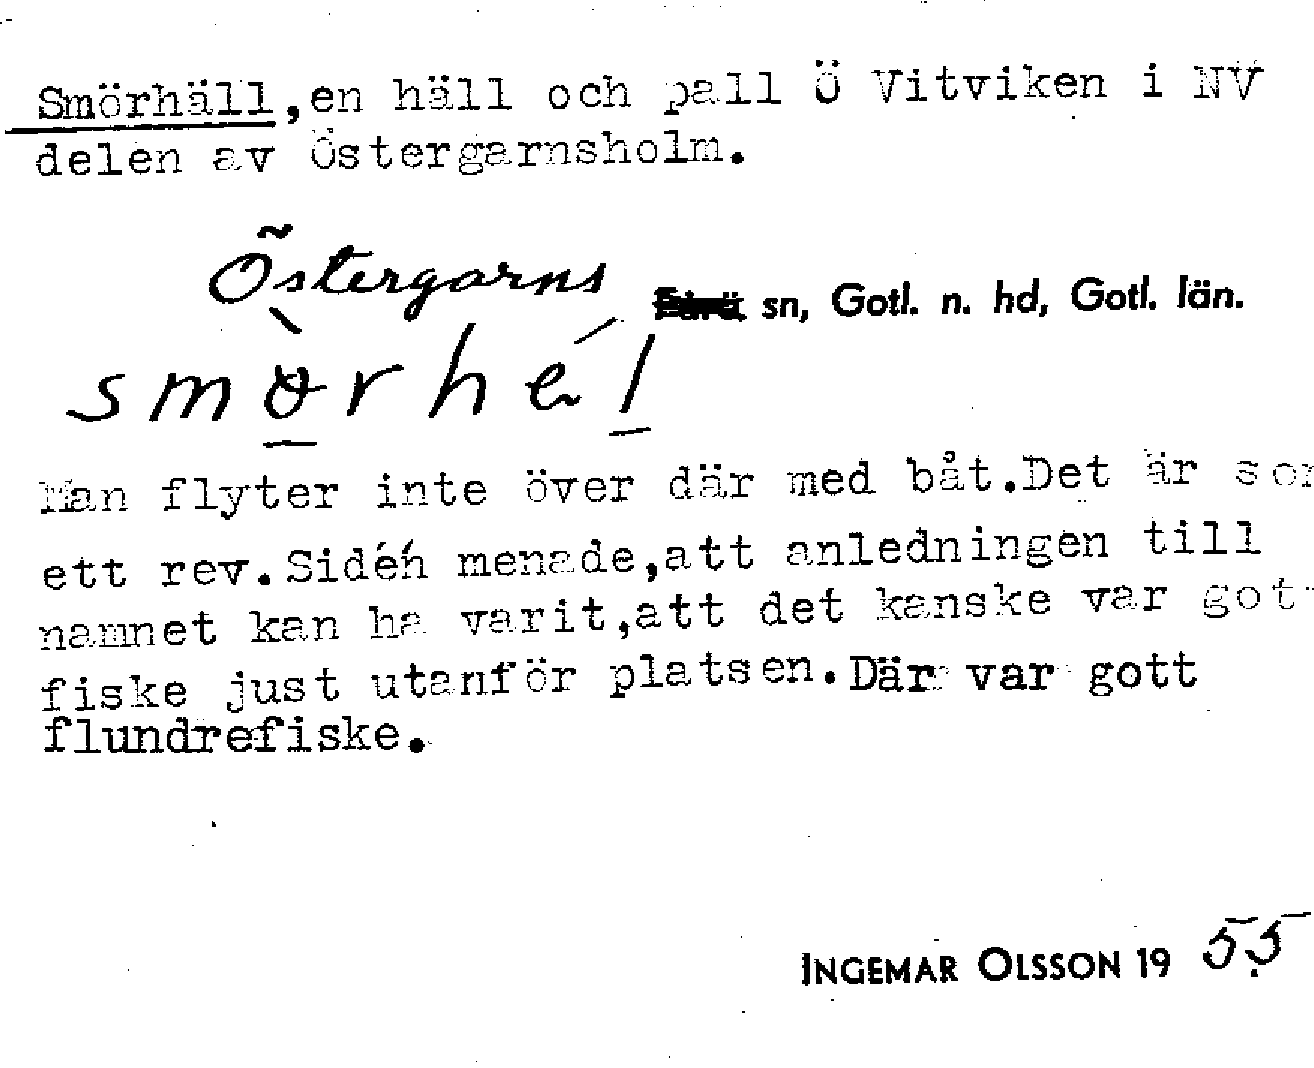 Smörhäll,en häll och pall Ö Vitviken i NV
delen av Östergarnsholm.
Östergarns sn, Gotl. n. hd, Gotl. län.
Man flyter inte över där med båt.Det är som
ett rev.Sidén menade,att anledningen till
namnet kan ha varit,att det kanske var gott
fiske just utanför platsen.Där var gott
flundrefiske.
INGEMAR OLSSON 19 55